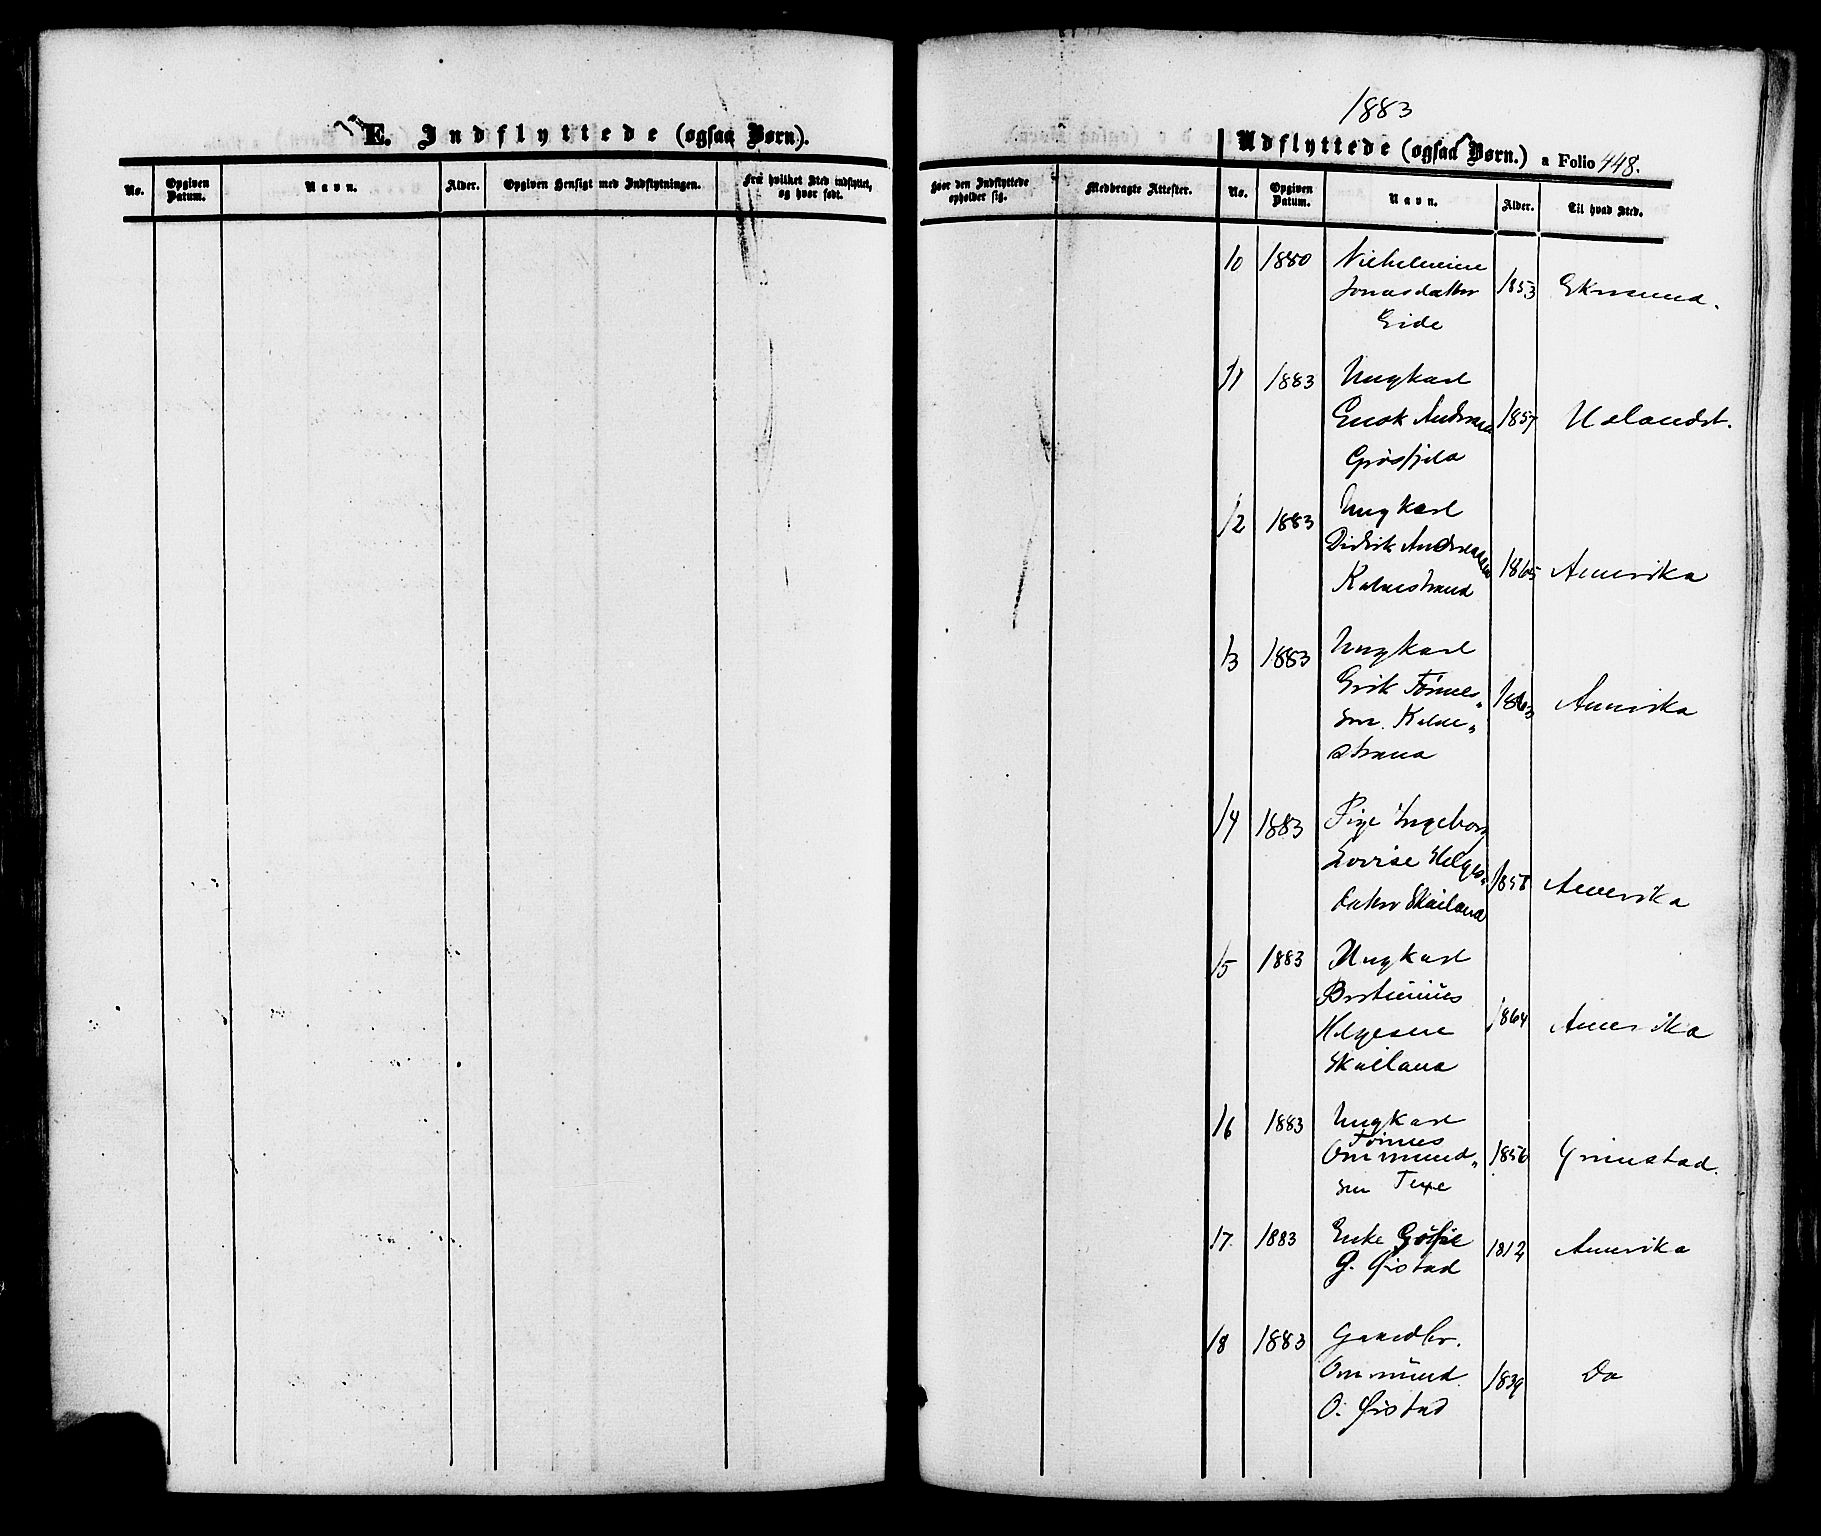 E. Indflyttede (ogsaa Børn).
No.
Opgiven Datum.
Navn.
Alder.
Opgiven Hensigt med Indflytningen.
Fra hvilket Sted indflyttet, og hvor født.
1883
Udflyttede (ogsaa Børn.) a Folio 448.
Hvor den Indflyttede opholder sig.
Medbragte Attester.
No.
Opgiven Datum.
Navn.
Alder.
Til hvad Sted.
10 1880 Vilhelmine
Jonasdatter 1853 Ekersund.
Eide
11 1883 Ungkarl
Enok Andreasen 1857
Grøsfjeld
12 1883 Ungkarl
Didrik Andreasen 1865 Amerika
Kalvestrand
13 1883 Ungkarl
Erik Tønnes- 1863 Amerika
sen. Kalve-
strand
14 1883 Pige Ingeborg
Lovise Helges- 1858 Amerika
datter Skailand
15 1883 Ungkarl
Bertinius
Helgesen 1864 Amerika
Skailand
16 1883 Ungkarl
Tønnes
Ommund- 1856 Grimstad.
sen
17. 1883 Enke 1812 Amerika
G. Øistad
18 1883 Gaardbr.
Ommund 1839 Do
O. Øistad